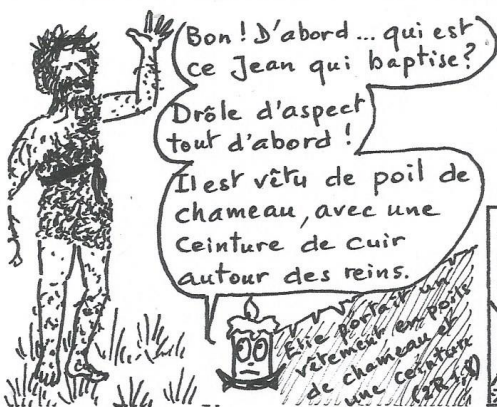 Bon ! D'abord ... qui est
ce Jean qui baptise ?
Drôle d'aspect
tout d'abord !
Il est vêtu de poil de
chameau, avec une
ceinture de cuir
autour des reins.
Elie portait un
vêtement en poils
de chameau et
une ceinture
(2R 1,8)